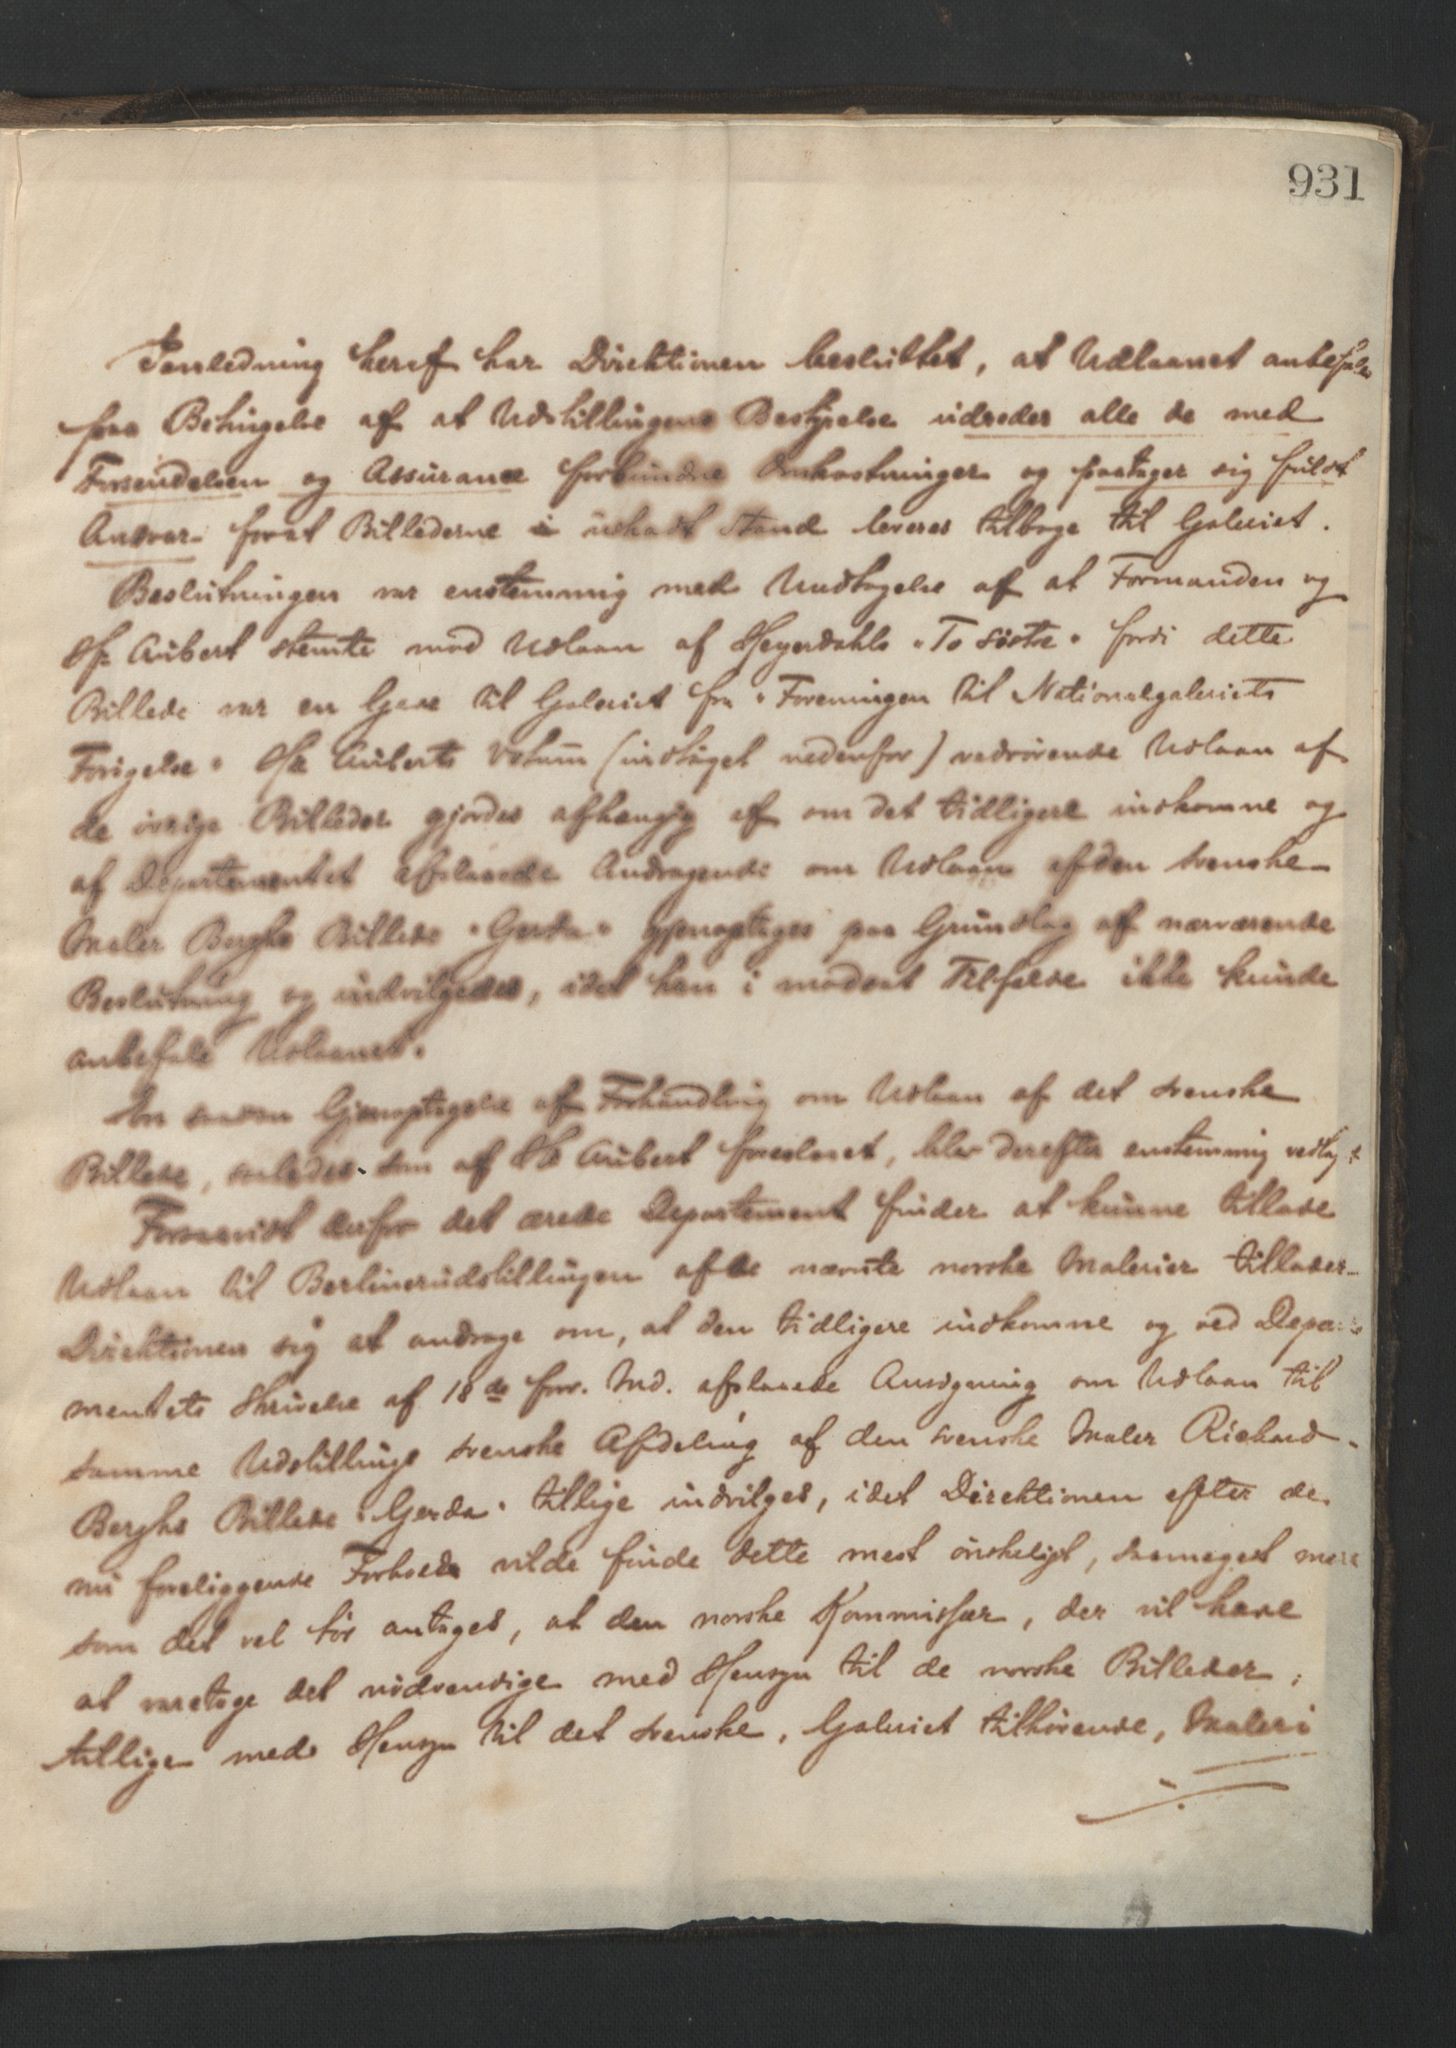 931
I anledning heraf har Direktionen besluttet, at Udlaanet anbefales
paa Betingelse af at Udstillingens Bestyrelse udreder alle de med
Forsendelsen og Assurance forbundne Omkostninger og paatager sig fuldt
Ansvar for at Billederne i uskadt Stand leveres tilbage til Galeriet.
Beslutningen var enstemmig med Undtagelse af at Formanden og
Hr. Aubert stemte mod Udlaan af Heyerdahls "To Søstre" fordi dette
Billede var en Gave til Galeriet fra "Foreningen til Nationalgaleriets
Forøgelse". Hr. Auberts Votum (indtaget nedenfor) vedrørende Udlaan af
de øvrige Billeder gjordes afhængig af om det tidligere indkomne og
af Departementet afslaaede Andragende om Udlaan af den svenske
Maler Berghs Billede "Gerda" gjenoptages paa Grundlag af nærværende
Beslutning og indvilgedes, idet han i modsat Tilfælde ikke kunde
anbefale Udlaanet.
En saadan Gjenoptagelse af Forhandling om Udlaan af det svenske
Billede, saaledes som af Hr Aubert foreslaaet, blev derefter enstemmig vedtaget
Forsaavidt derfor det ærede Departement finder at kunne tillade
Udlaan til Berlinerudstillingen af de nævnte norske Malerier tillader
Direktionen sig at andrage om, at den tidligere indkomne og ved Departe
mentets Skrivelse af 18de for. Md. afslaaede Ansøgning om Udlaan til
samme Udstillings svenske Afdeling af den svenske Maler Richard
Berghs Billede "Gerda" tillige indvilges, idet Direktionen efter de
nu foreliggende Forholde vilde finde dette mest ønskeligt, saameget mere
som det vel tør antages, at den norske Kommissær, der vil have
at varetage det nødvendige med Hensyn til de norske Billeder,
tillige med Hensyn til det svenske, Galeriet tilhørende, Maleri